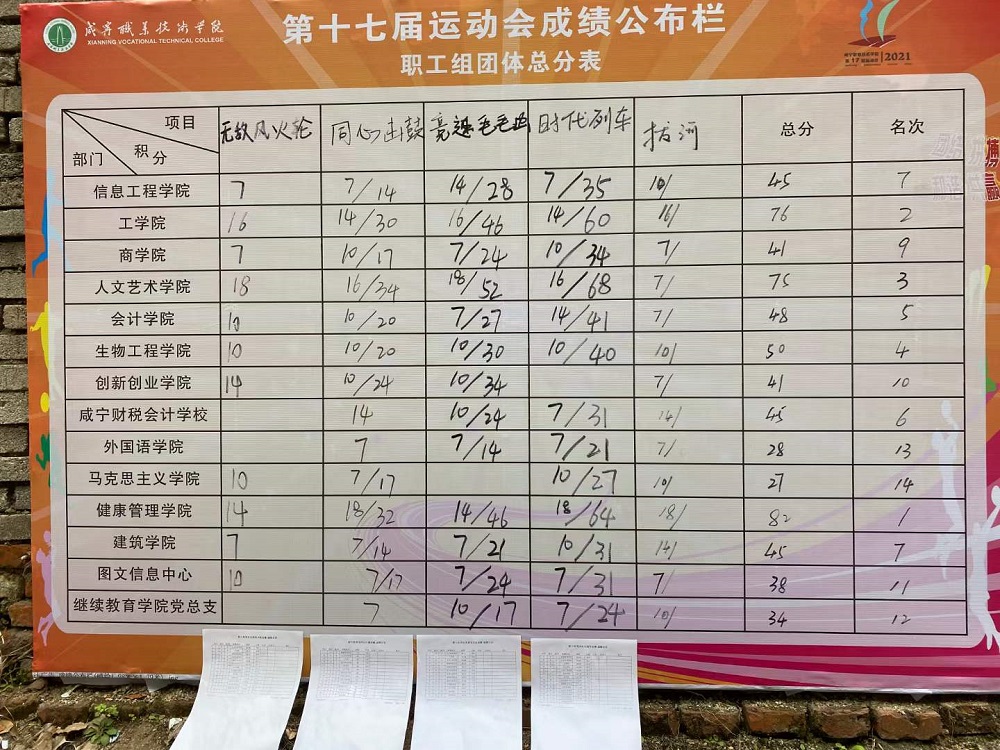 咸宁职业技术学院
XIANNING VOCATIONAL TECHNICAL COLLEGE
第十七届运动会成绩公布栏
职工组团体总分表
2021
项目 积分 部门 无敌风火轮 同心击鼓 竞速毛毛虫 时代列车 拔河 总分 名次
信息工程学院 7 7/14 14/28 7/35 10/ 45 7
工学院 16 14/30 16/46 14/60 16/ 76 2
商学院 7 10/17 7/24 10/34 7/ 41 9
人文艺术学院 18 16/34 18/52 16/68 7/ 75 3
会计学院 10 10/20 7/27 14/41 7/ 48 5
生物工程学院 10 10/20 10/30 10/40 10/ 50 4
创新创业学院 14 10/24 10/34 7/ 41 10
咸宁财税会计学校 14 10/24 7/31 14/ 45 6
外国语学院 7 7/14 7/21 7/ 28 13
马克思主义学院 10 7/17 10/27 10/ 27 14
健康管理学院 14 18/32 14/46 18/64 18/ 82 1
建筑学院 7 7/14 7/21 10/31 14/ 45 7
图文信息中心 10 7/17 7/24 7/31 7/ 38 11
继续教育学院党总支 7 10/17 7/24 10/ 34 12